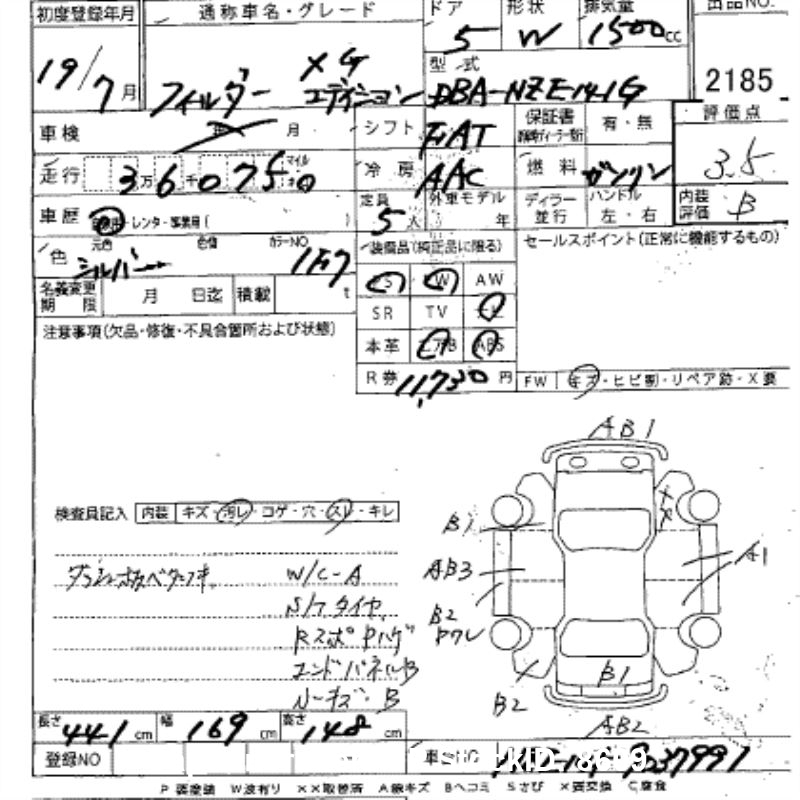 初度登録年月 通称車名・グレード ドア 形状 排気量 出品NO.
19/7月 フィルダー XG エディション 5 W 1500cc
型式 DBA-NZE141G 2185
車検 年 月 シフト FAT 保証書 有・無 評価点
走行 3万6千075.0 マイル 冷房 AAC 燃料 ガソリン 3.5
車歴 自家用・レンタ・事業用( ) 定員 5人 外車モデル 年 ディーラー 並行 ハンドル 左・右 内装評価 B
色 元色 色替 カラーNO
シルバー 1F7
装備品(純正品に限る) セールスポイント(正常に機能するもの)
名義変更期限 月 日迄 積載 t
S W AW
SR TV
本革 エアB ABS
注意事項(欠品・修復・不具合箇所および状態)
R券 11,730円 FW キズ・ヒビ割・リペア跡・X要
AB1
検査員記入 内装 キズ・汚レ・コゲ・穴・スレ・キレ
XX
B1
AB3
A1
W/C-A
S/Tタイヤ
B2
Rスポ
エンドパネルB
B1
B2
AB2
長さ 441cm 幅 169cm 高さ 148cm
登録NO
P要塗装 W波有り XX取替済 A線キズ Bヘコミ Sさび X要交換 C腐食